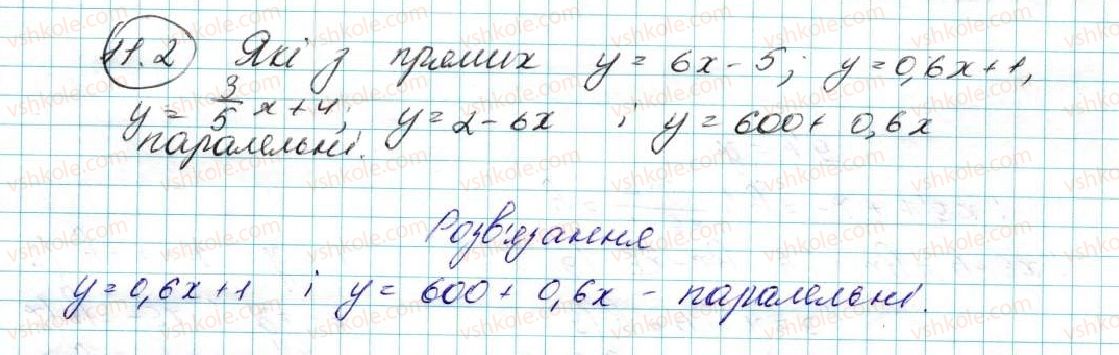 11.2 Які з прямих y = 6x - 5; y = 0,6x + 1,
y = 3/5 x + 4; y = 2 - 6x і y = 600 + 0,6x
паралельні.
Розв'язання
y = 0,6x + 1 і y = 600 + 0,6x - паралельні.